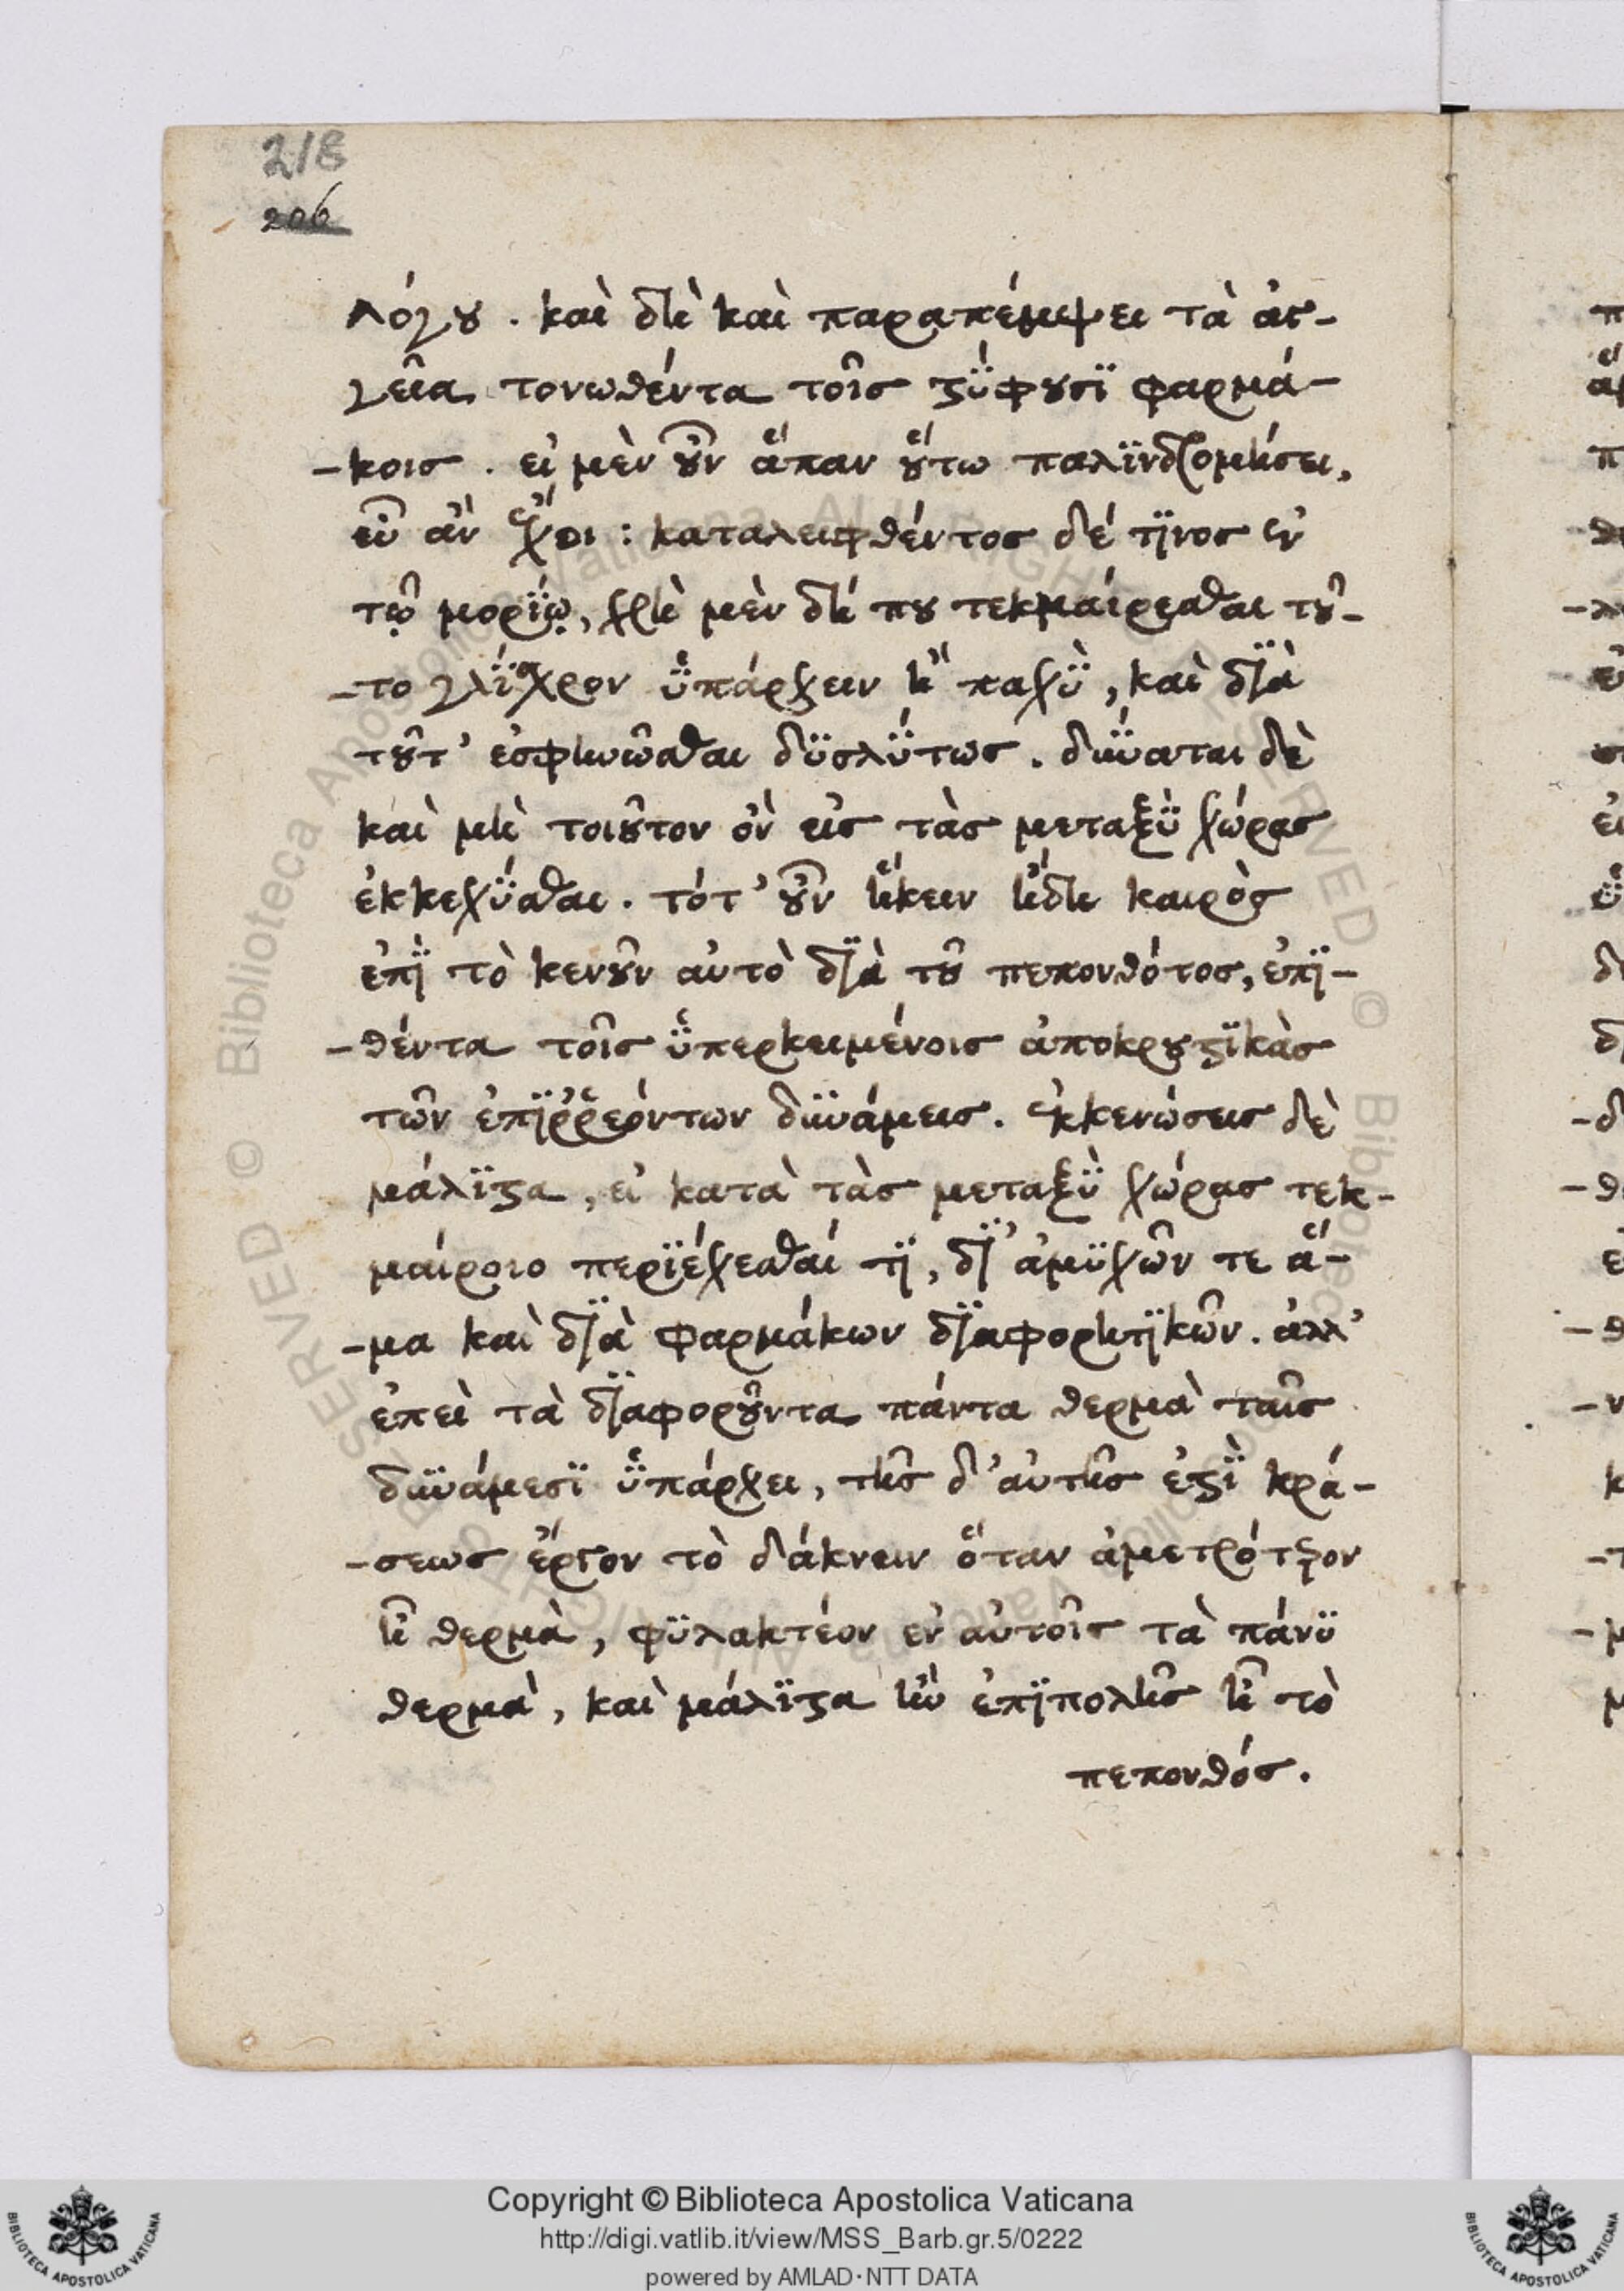 218
206
λόγου. καὶ δὴ καὶ παραπέμψει τὰ ἀγ-
γεῖα τονωθέντα τοῖς στύφουσϊ φαρμά-
-κοις. εἰ μὲν οὖν ἅπαν οὕτω παλϊνδρομήσει,
εὖ ἂν ἔχοι: καταλειφθέντος δέ τϊνος ἐν
τῷ μορίῳ, χρὴ μὲν δή που τεκμαίρεσθαι τοῦ-
-το γλίσχρον ὑπάρχειν ἢ παχὺ, καὶ δϊὰ
τοῦτ’ ἐσφηνῶσθαι δϋσλύτως. δύναται δὲ
καὶ μὴ τοιοῦτον ὂν εἰς τὰς μεταξὺ χώρας
ἐκκεχύσθαι. τότ’ οὖν ἥκειν ἤδη καιρὸς
ἐπῒ τὸ κενοῦν αὐτὸ δϊὰ τοῦ πεπονθότος, ἐπϊ-
-θέντα τοῖς ὑπερκειμένοις ἀποκρουστϊκὰς
τῶν ἐπϊῤῥεόντων δυνάμεις. ἐκκενώσεις δὲ
μάλϊστα, εἰ κατὰ τὰς μεταξὺ χώρας τεκ-
μαίροιο περϊέχεσθαί τϊ, δϊ’ ἀμϋχῶν τε ἅ-
-μα καὶ δϊὰ φαρμάκων δϊαφορητϊκῶν. ἀλλ’
ἐπεὶ τὰ δϊαφοροῦντα πάντα θερμὰ ταῖς
δυνάμεσϊ ὑπάρχει, τῆς δ’ αὐτῆς ἐστῒ κρά-
-σεως ἔργον τὸ δάκνειν ὅταν ἀμετρότερον
ᾖ θερμὰ, φϋλακτέον ἐν αὐτοῖς τὰ πάνϋ
θερμὰ, καὶ μάλϊστα ἢν ἐπϊπολῆς ᾖ τὸ
πεπονθός.
Copyright © Biblioteca Apostolica Vaticana
http://digi.vatlib.it/view/MSS_Barb.gr.5/0222
powered by AMLAD·NTT DATA